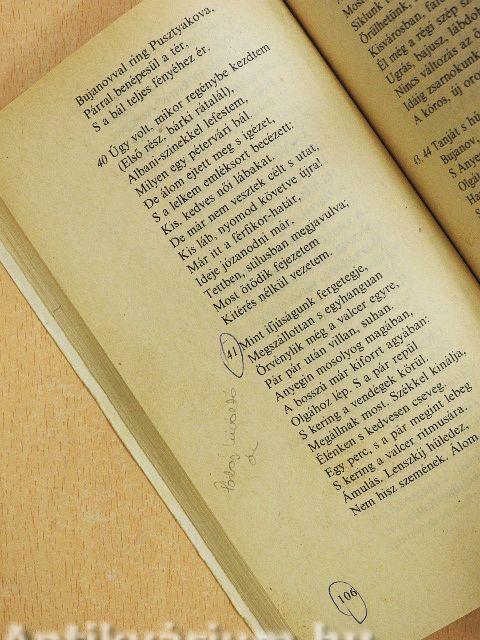 Bujanovval ring Pusztyakova,
Párral benépesül a tér,
S a bál teljes fényéhez ér.
40 Úgy volt, mikor regénybe kezdtem
(Első rész, bárki rátalál),
Albani-színekkel lefestem,
Milyen egy pétervári bál.
De álom ejtett meg s igézet,
S a lelkem emléksort becézett:
Kis, kedves női lábakat.
De már nem vesztek célt s utat,
Kis láb, nyomod követve újra!
Már itt a férfikor-határ,
Ideje józanodni már,
Tettben, stílusban megjavulva;
Most ötödik fejezetem
Kitérés nélkül vezetem.
41 Mint ifjúságunk fergetegje,
Megszállottan s egyhanguan
Örvénylik még a valcer egyre,
Pár pár után villan, suhan.
Anyegin mosolyog magában,
A bosszú már kiforrt agyában:
Olgához lép. S a pár repül
S kering a vendégek körül.
Megállnak most. Székkel kínálja,
Élénken s kedvesen cseveg.
Egy perc, s a pár megint lebeg
S kering a valcer ritmusára.
Ámulás. Lenszkij hüledez,
Nem hisz szemének. Álom
106
Most
Siklunk
Őrülhetünk,
Kisvárosban, falu
Él még a régi szép sz
Ugrás, bajusz, lábdob
Nincs változás az ő
Idáig zsarnokunk
A kóros, új oro
43. 44 Tanját s hú
Bujanov,
S Anye
Olgái
Ha
S
Antikvárium.hu